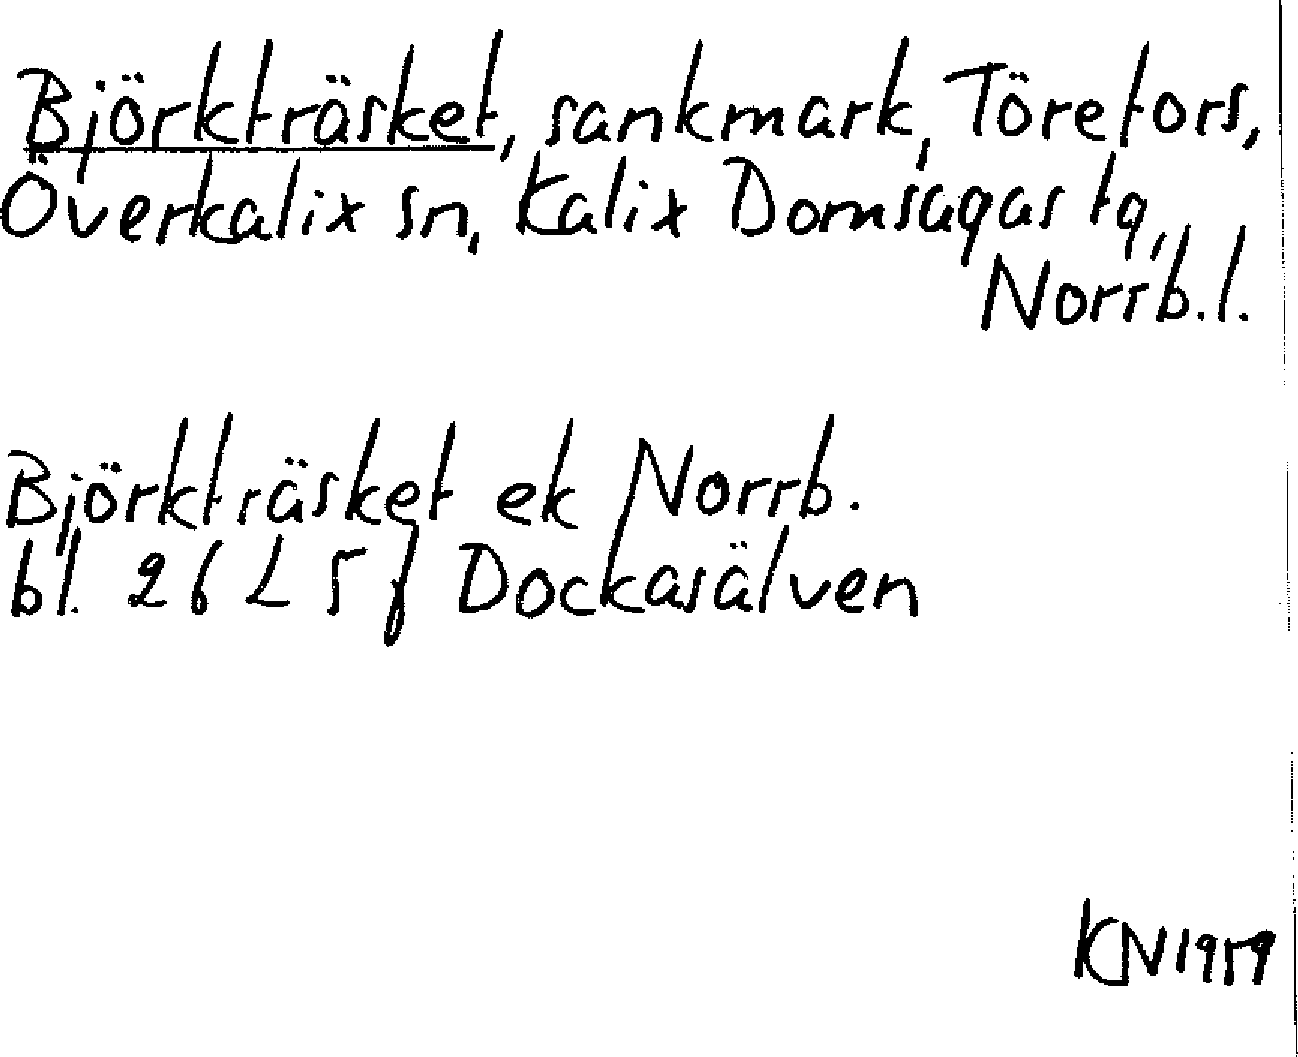 Björkträsket, sankmark, Törefors,
Överkalix sn, Kalix Domsagas tg,
Norrb.l.
Björkträsket ek Norrb.
bl. 26 L 5 f Dockasälven
KN1959